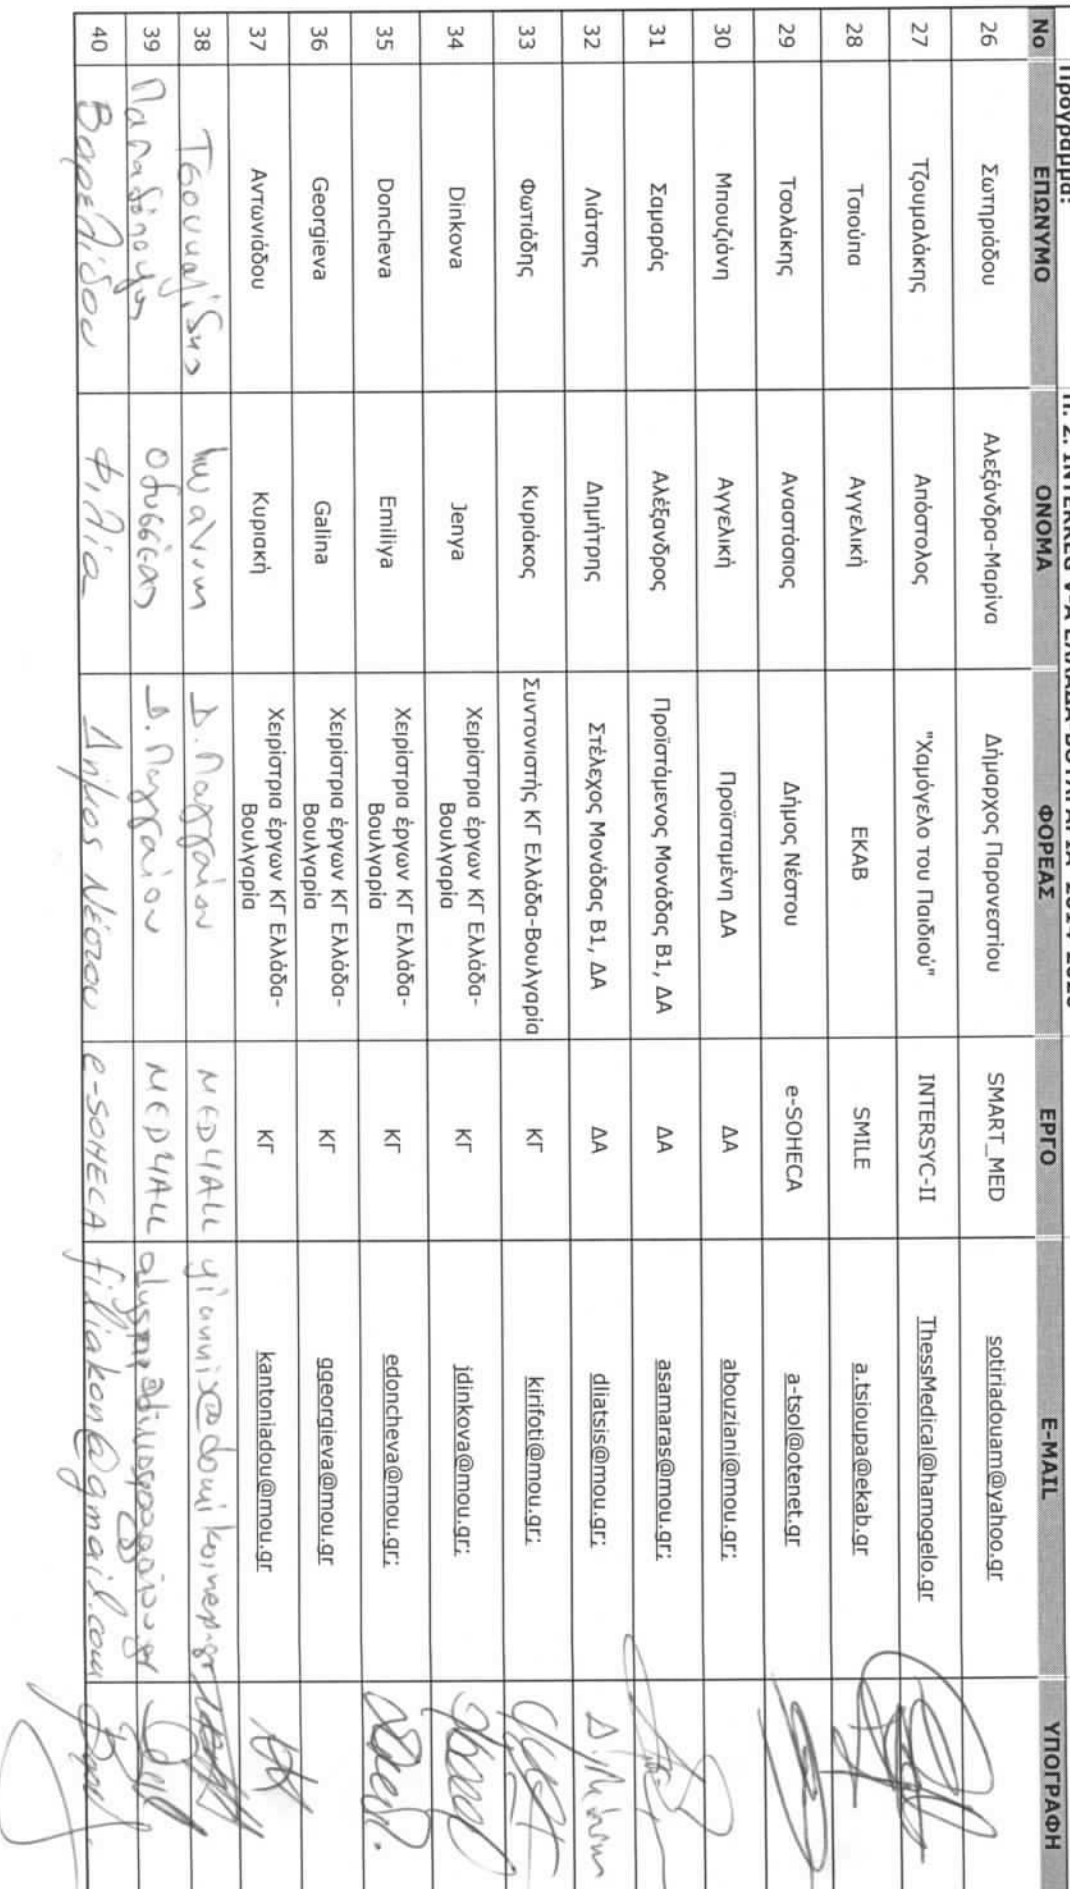 Πρόγραμμα: Π. Σ. INTERREG V-A ΕΛΛΑΔΑ-ΒΟΥΛΓΑΡΙΑ 2014-2020
No ΕΠΩΝΥΜΟ ΟΝΟΜΑ ΦΟΡΕΑΣ ΕΡΓΟ E-MAIL ΥΠΟΓΡΑΦΗ
26 Σωτηριάδου Αλεξάνδρα-Μαρίνα Δήμαρχος Παρανεστίου SMART_MED sotiriadouam@yahoo.gr
27 Τζουμαλάκης Απόστολος "Χαμόγελο του Παιδιού" INTERSYC-II ThessMedical@hamogelo.gr
28 Τσιούπα Αγγελική ΕΚΑΒ SMILE a.tsioupa@ekab.gr
29 Τσολάκης Αναστάσιος Δήμος Νέστου e-SOHECA a-tsol@otenet.gr
30 Μπουζιάνη Αγγελική Προϊσταμένη ΔΑ ΔΑ abouziani@mou.gr;
31 Σαμαράς Αλέξανδρος Προϊστάμενος Μονάδας Β1, ΔΑ ΔΑ asamaras@mou.gr;
32 Λιάτσης Δημήτρης Στέλεχος Μονάδας Β1, ΔΑ ΔΑ dliatsis@mou.gr;
33 Φωτιάδης Κυριάκος Συντονιστής ΚΓ Ελλάδα-Βουλγαρία ΚΓ kirifoti@mou.gr;
34 Dinkova Jenya Χειρίστρια έργων ΚΓ Ελλάδα-
Βουλγαρία ΚΓ jdinkova@mou.gr;
35 Doncheva Emiliya Χειρίστρια έργων ΚΓ Ελλάδα-
Βουλγαρία ΚΓ edoncheva@mou.gr;
36 Georgieva Galina Χειρίστρια έργων ΚΓ Ελλάδα-
Βουλγαρία ΚΓ ggeorgieva@mou.gr
37 Αντωνιάδου Κυριακή Χειρίστρια έργων ΚΓ Ελλάδα-
Βουλγαρία ΚΓ kantoniadou@mou.gr
38 Τσουκαλίδης Ιωάννη Δ. Παγγαίου MED4ALL
39 Παπαδόπουλος Οδυσσέας Δ. Παγγαίου MED4ALL
40 Βαρελίδου Φιλία Δήμος Νέστου e-SOHECA filiakon@gmail.com